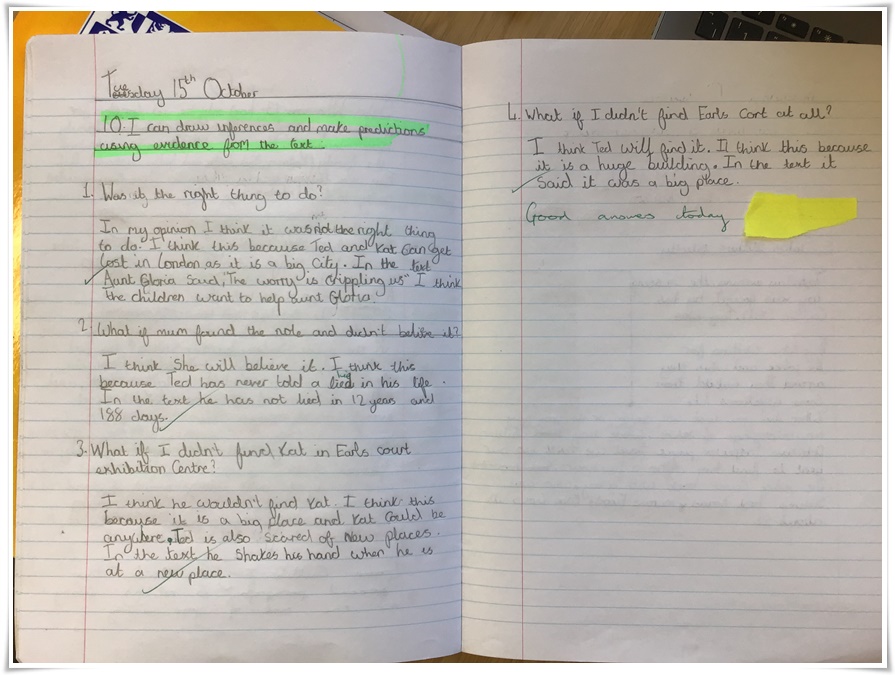 Tuesday 15th October
10. I can draw inferences and make predictions
using evidence from the text.
1. Was it the right thing to do?
In my opinion I think it was not the right thing
to do. I think this because Ted and Kat can get
lost in London as it is a big city. In the text
Aunt Gloria said, "The worry is crippling us" I think
the children want to help aunt Gloria.
2. What if mum found the note and didn't belive it?
I think She will believe it. I think this
because Ted has never told a lied in his life.
In the text he has not lied in 12 years and
188 days.
3. What if I didn't find Kat in Earls court
exhibition Centre?
I think he wouldn't find Kat. I think this
because it is a big place and Kat could be
anywere. Ted is also scared of new places.
In the text he shakes his hand when he is
at a new place.
4. What if I didn't find Earls Cort at all?
I think Ted will find it. I think this because
it is a huge building. In the text it
said it was a big place.
Good answers today